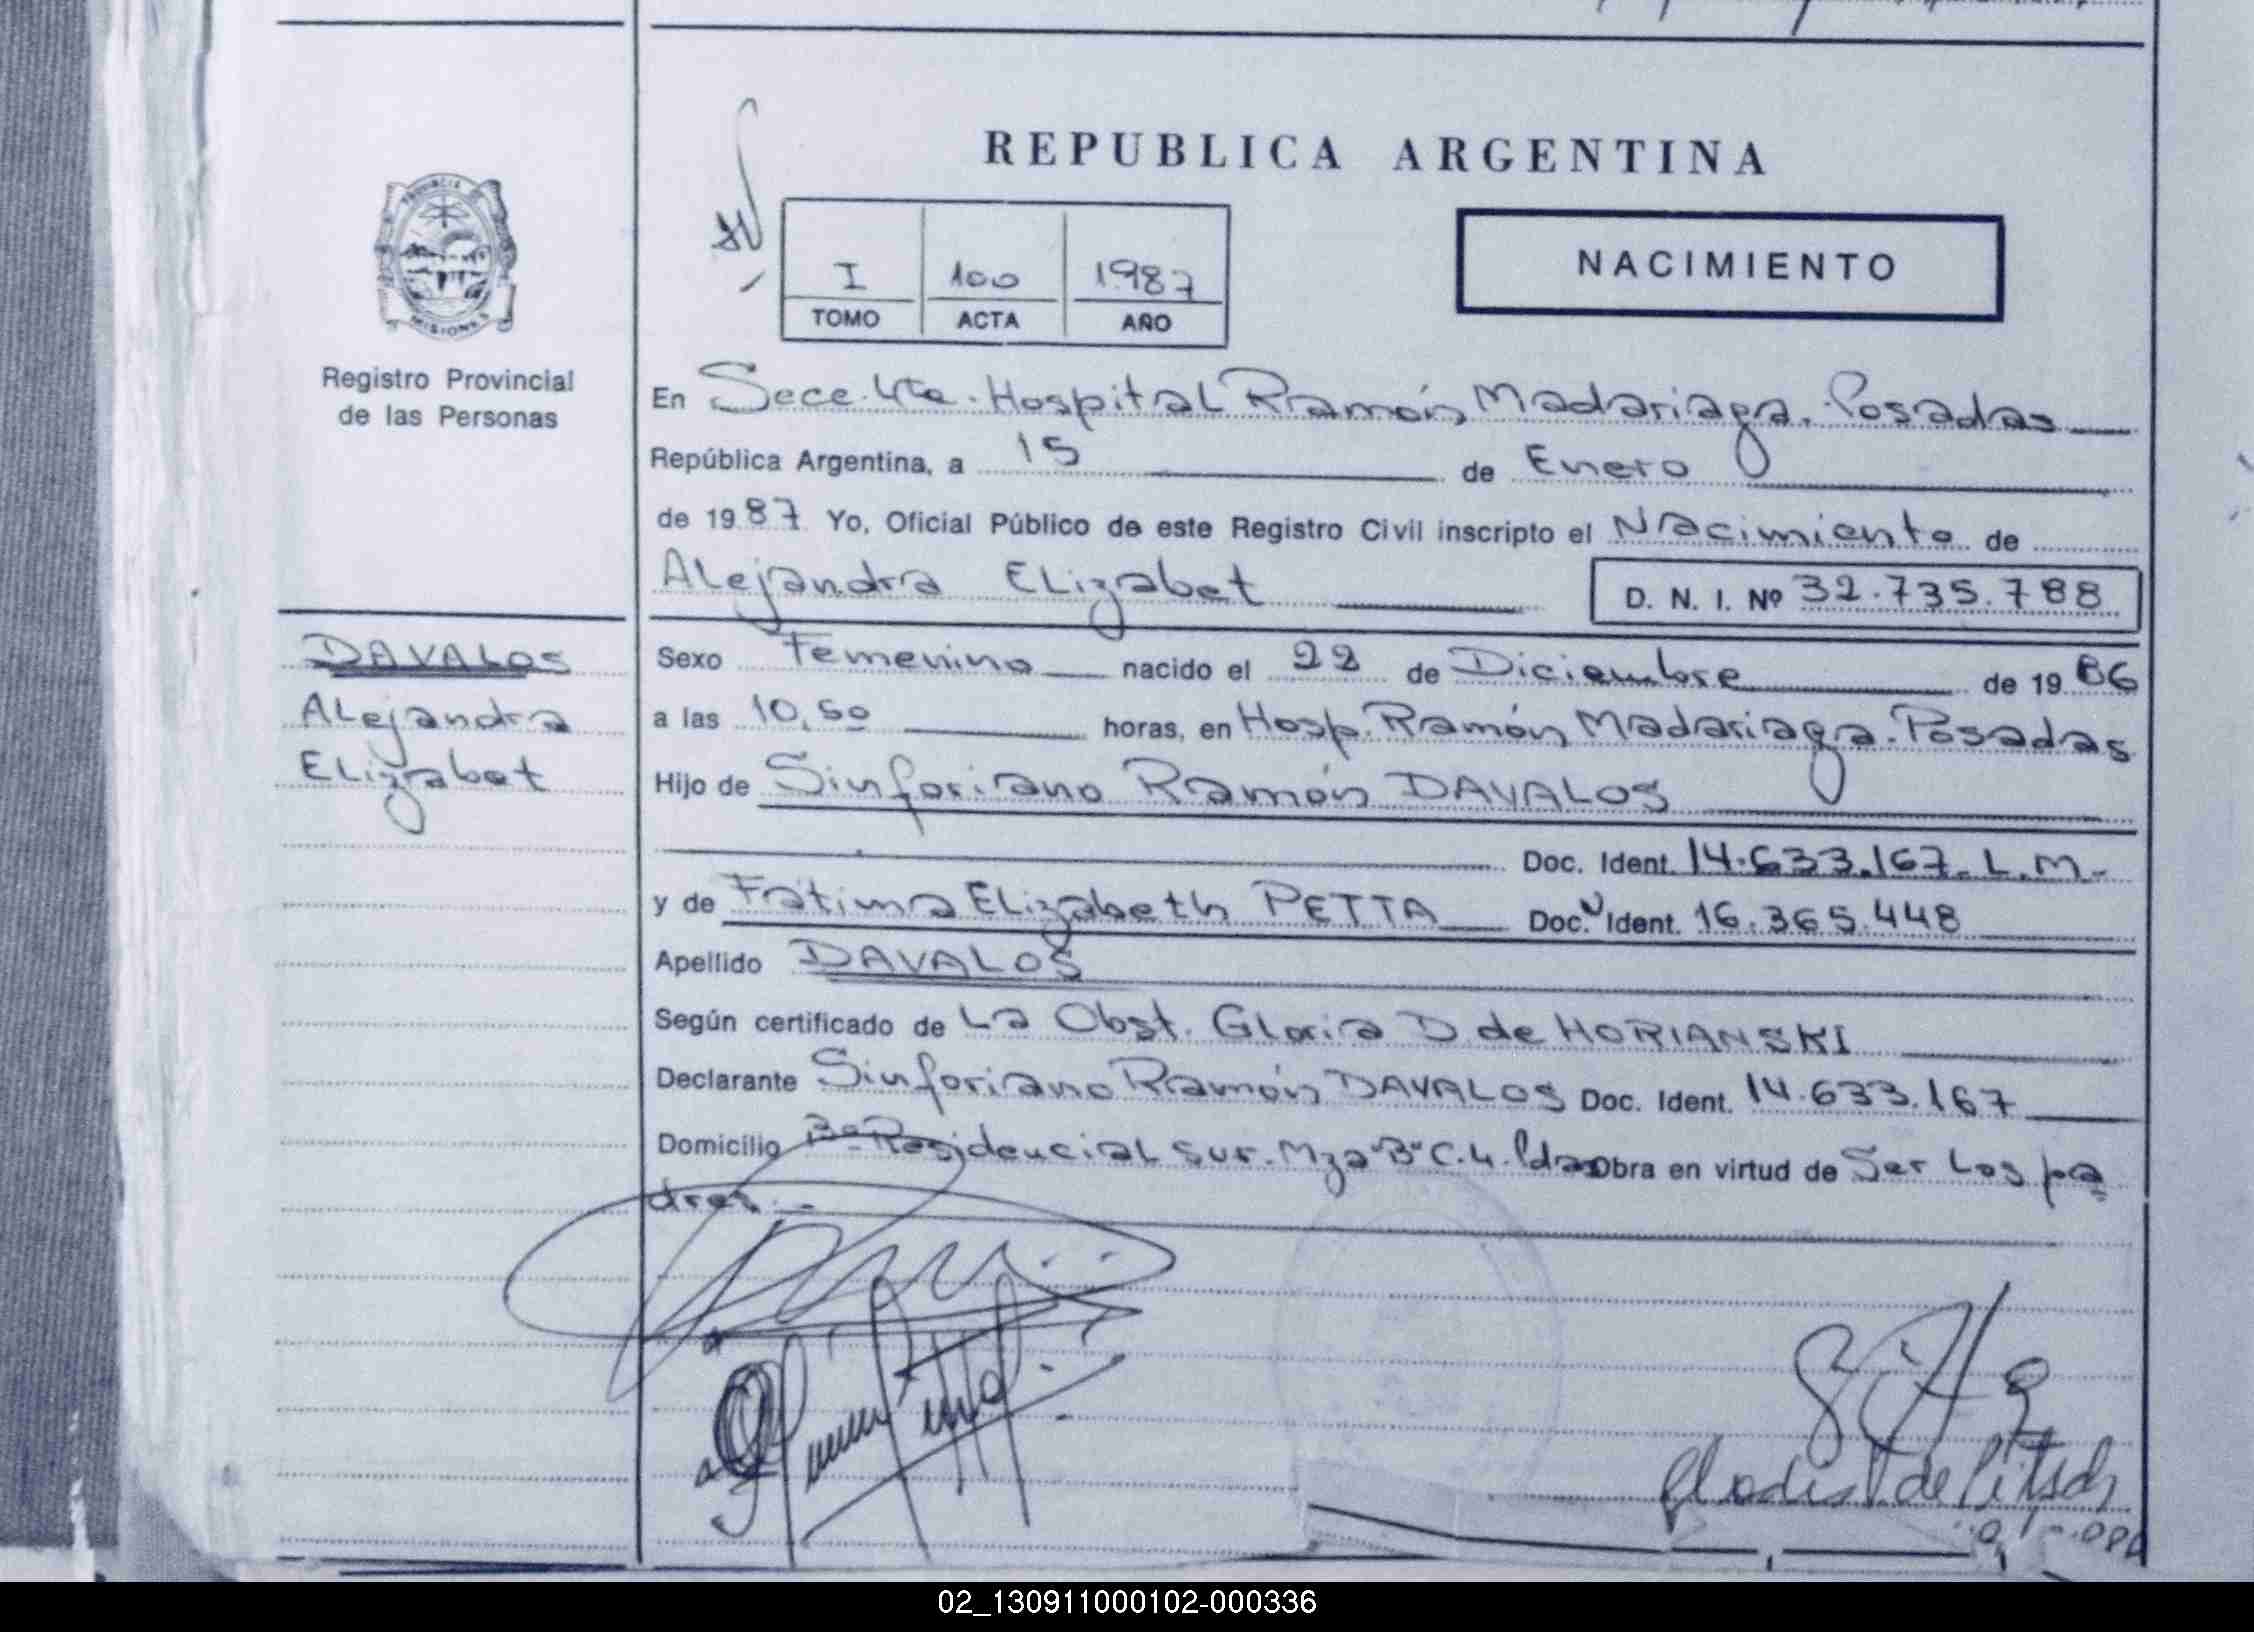 REPUBLICA ARGENTINA
PROVINCIA DE
MISIONES
Registro Provincial
de las Personas
I 100 1987
TOMO ACTA AÑO
NACIMIENTO
En Secc. 4ta. Hospital Ramón Madariaga. Posadas
República Argentina, a 15 de Enero
de 1987 Yo, Oficial Público de este Registro Civil inscripto el Nacimiento de
Alejandra Elizabet D. N. I. Nº 32.735.788
DAVALOS
Alejandra
Elizabet
Sexo Femenino nacido el 22 de Diciembre de 1986
a las 10,50 horas, en Hosp. Ramón Madariaga. Posadas
Hijo de Sinforiano Ramón DAVALOS
Doc. Ident. 14.633.167. L.M.-
y de Fátima Elizabeth PETTA Doc. Ident. 16.365.448
Apellido DAVALOS
Según certificado de La Obst. Gloria D de HORIANSKI
Declarante Sinforiano Ramón DAVALOS Doc. Ident. 14.633.167
Domicilio Bº Residencial Sur. Mza "B" C.4. Pdas Obra en virtud de Ser Los pa
dres.-
02_130911000102-000336